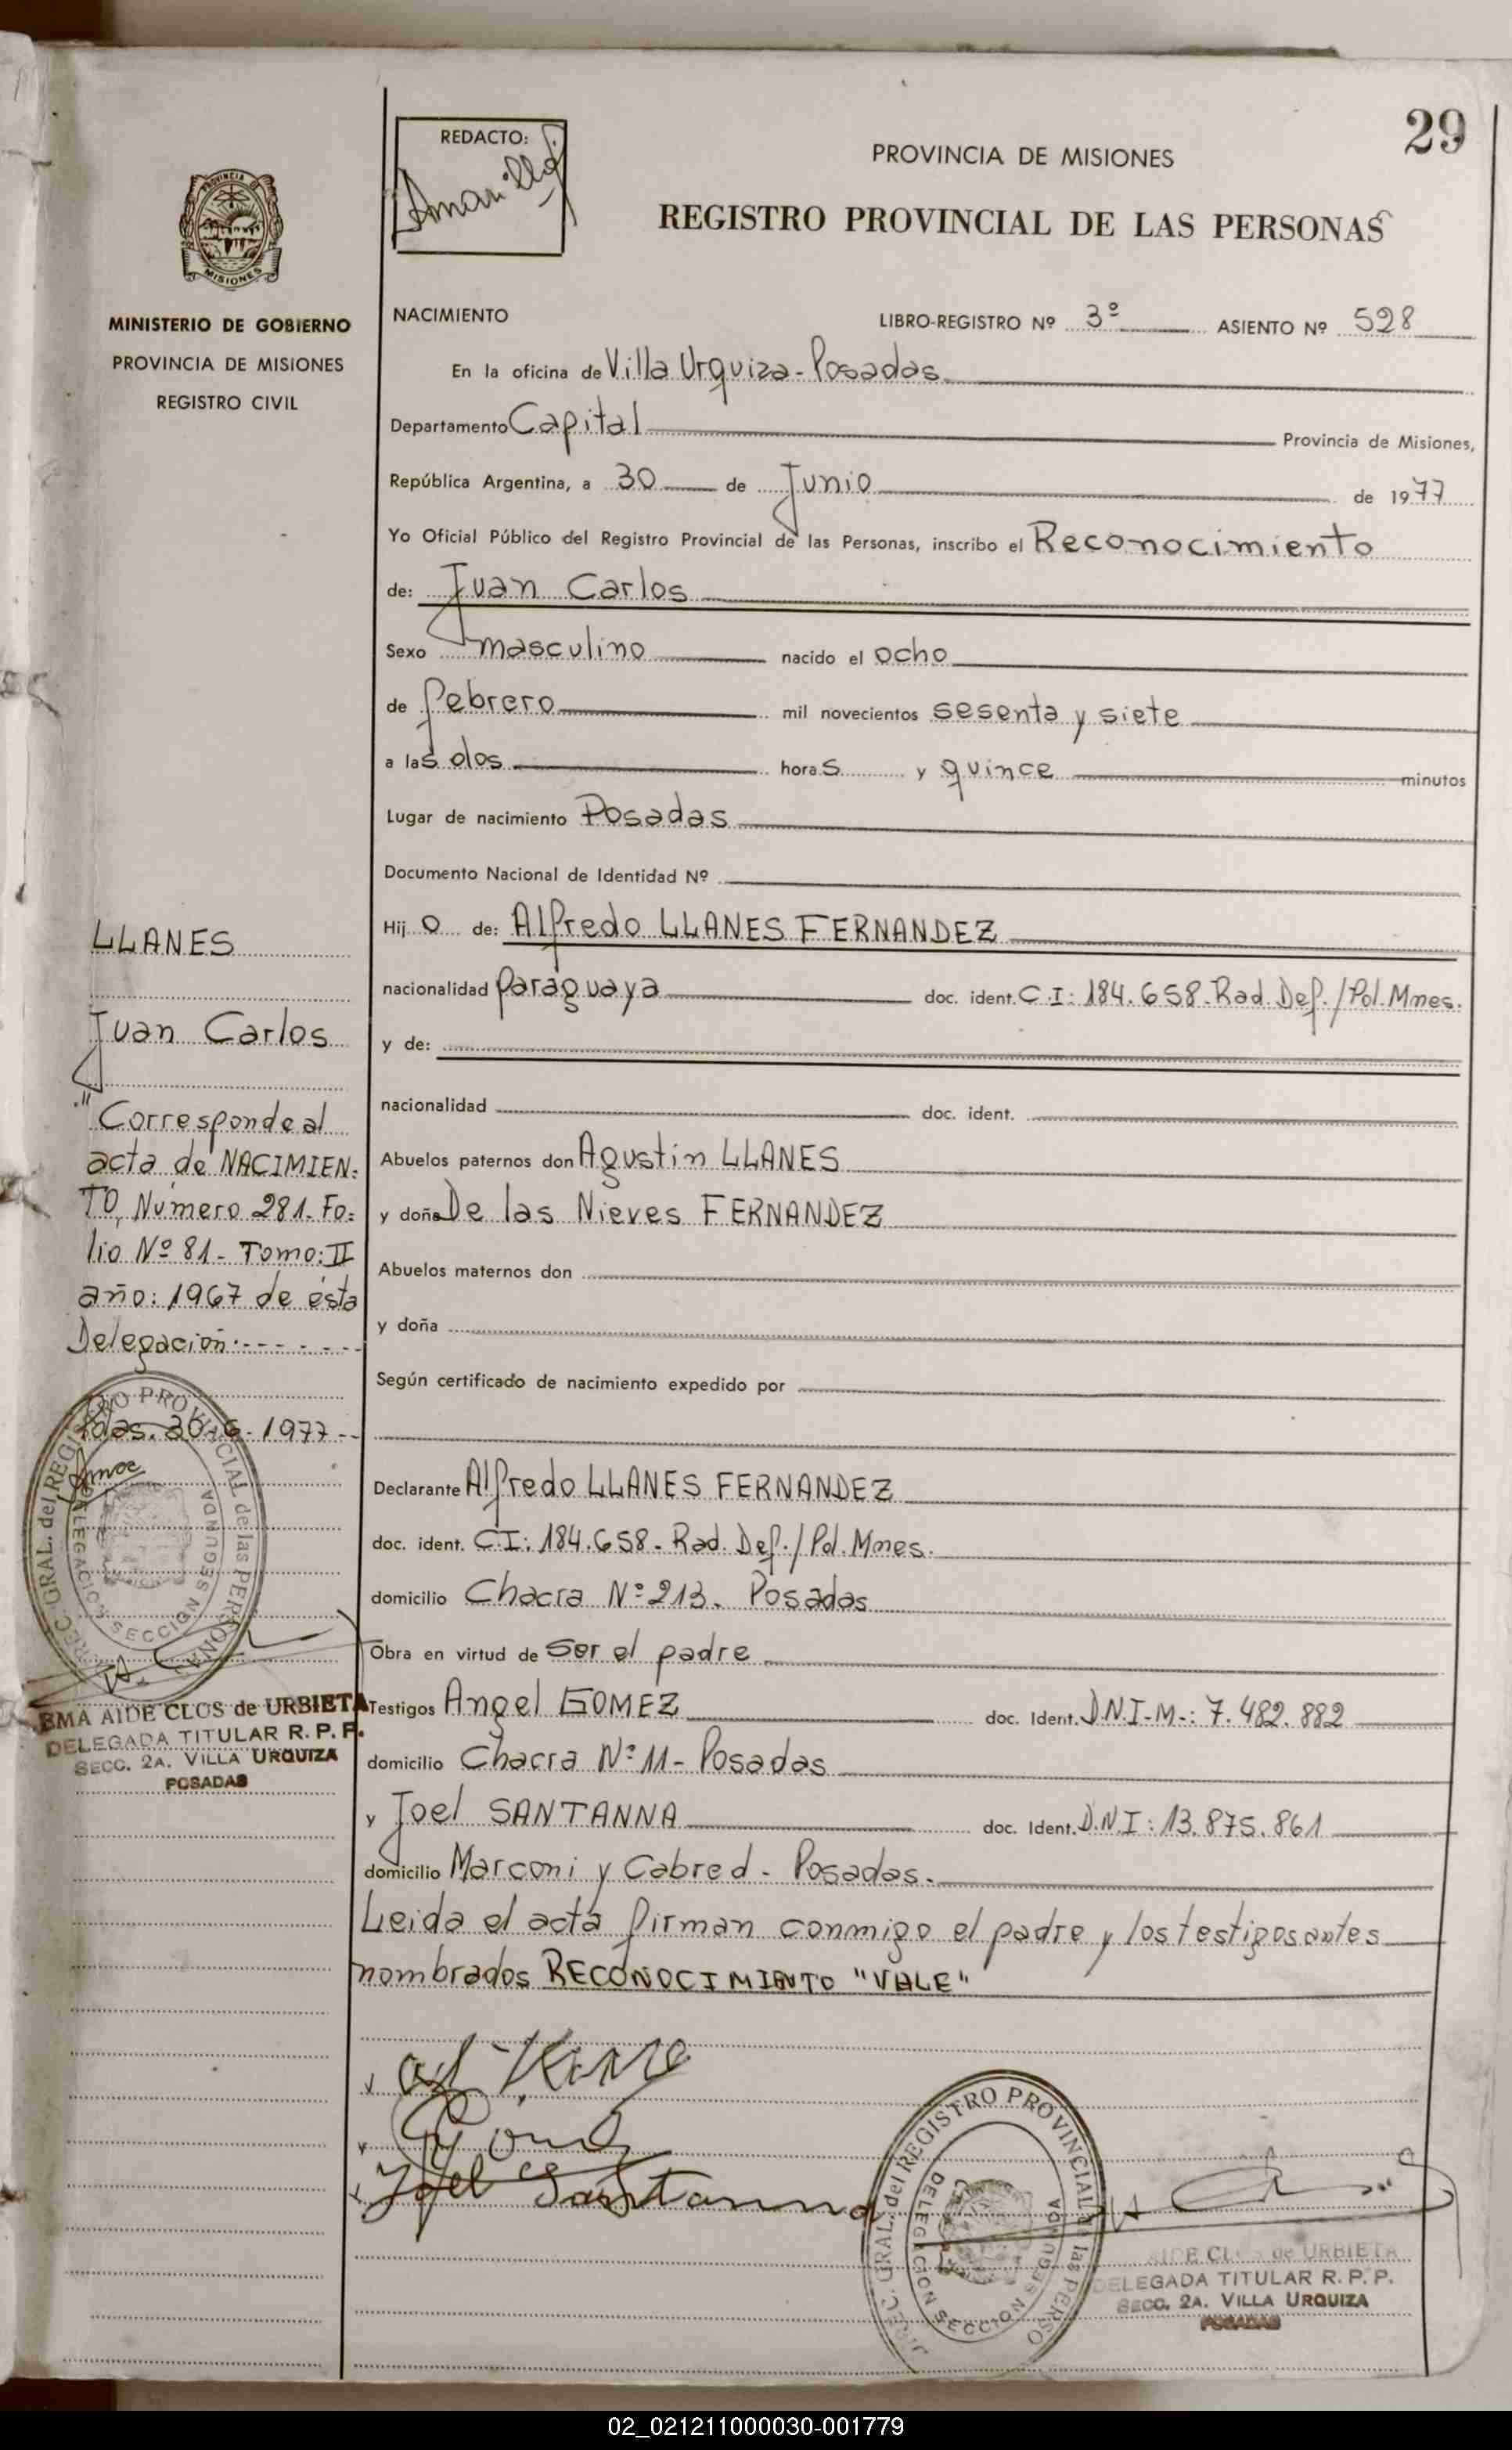 29
REDACTO:
PROVINCIA DE MISIONES
REGISTRO PROVINCIAL DE LAS PERSONAS
PROVINCIA DE
MISIONES
MINISTERIO DE GOBIERNO
PROVINCIA DE MISIONES
REGISTRO CIVIL
NACIMIENTO LIBRO-REGISTRO Nº 3º ASIENTO Nº 528
En la oficina de Villa Urquiza - Posadas
Departamento Capital Provincia de Misiones,
República Argentina, a 30 de Junio de 1977
Yo Oficial Público del Registro Provincial de las Personas, inscribo el Reconocimiento
de: Juan Carlos
Sexo masculino nacido el ocho
de febrero mil novecientos sesenta y siete
a las dos horas y quince minutos
Lugar de nacimiento Posadas
Documento Nacional de Identidad Nº
Hijo de: Alfredo LLANES FERNANDEZ
nacionalidad paraguaya doc. ident. C.I: 184.658. Rad. Def./Pol. Mnes.
y de:
nacionalidad doc. ident.
Abuelos paternos don Agustin LLANES
y doña De las Nieves FERNANDEZ
Abuelos maternos don
y doña
Según certificado de nacimiento expedido por
Declarante Alfredo LLANES FERNANDEZ
doc. ident. C.I: 184.658 - Rad. Def./Pol. Mnes.
domicilio Chacra Nº 213. Posadas
Obra en virtud de ser el padre
Testigos Angel GOMEZ doc. Ident. D.N.I-M-: 7.482.882
domicilio Chacra Nº 11 - Posadas
y Joel SANTANNA doc. Ident. D.N.I: 13.875.861
domicilio Marconi y Cabred - Posadas.
Leida el acta firman conmigo el padre y los testigos antes
nombrados RECONOCIMIENTO "VALE"
LLANES
Juan Carlos
"Corresponde al
acta de NACIMIEN-
TO, Número 281. Fo-
lio Nº 81 - Tomo: II
año: 1967 de ésta
Delegación.
Pdas. 30-6-1977
DIREC. GRAL. del REGISTRO PROVINCIAL de las PERSONAS
DELEGACION SECCION SEGUNDA
EMA AIDE CLOS de URBIETA
DELEGADA TITULAR R. P. P.
SECC. 2A. VILLA URQUIZA
POSADAS
Joel Santanna
DIREC. GRAL. del REGISTRO PROVINCIAL de las PERSO
DELEGACION SECCION SEGUNDA
AIDE CLOS de URBIETA
DELEGADA TITULAR R. P. P.
SECC. 2A. VILLA URQUIZA
POSADAS
02_021211000030-001779